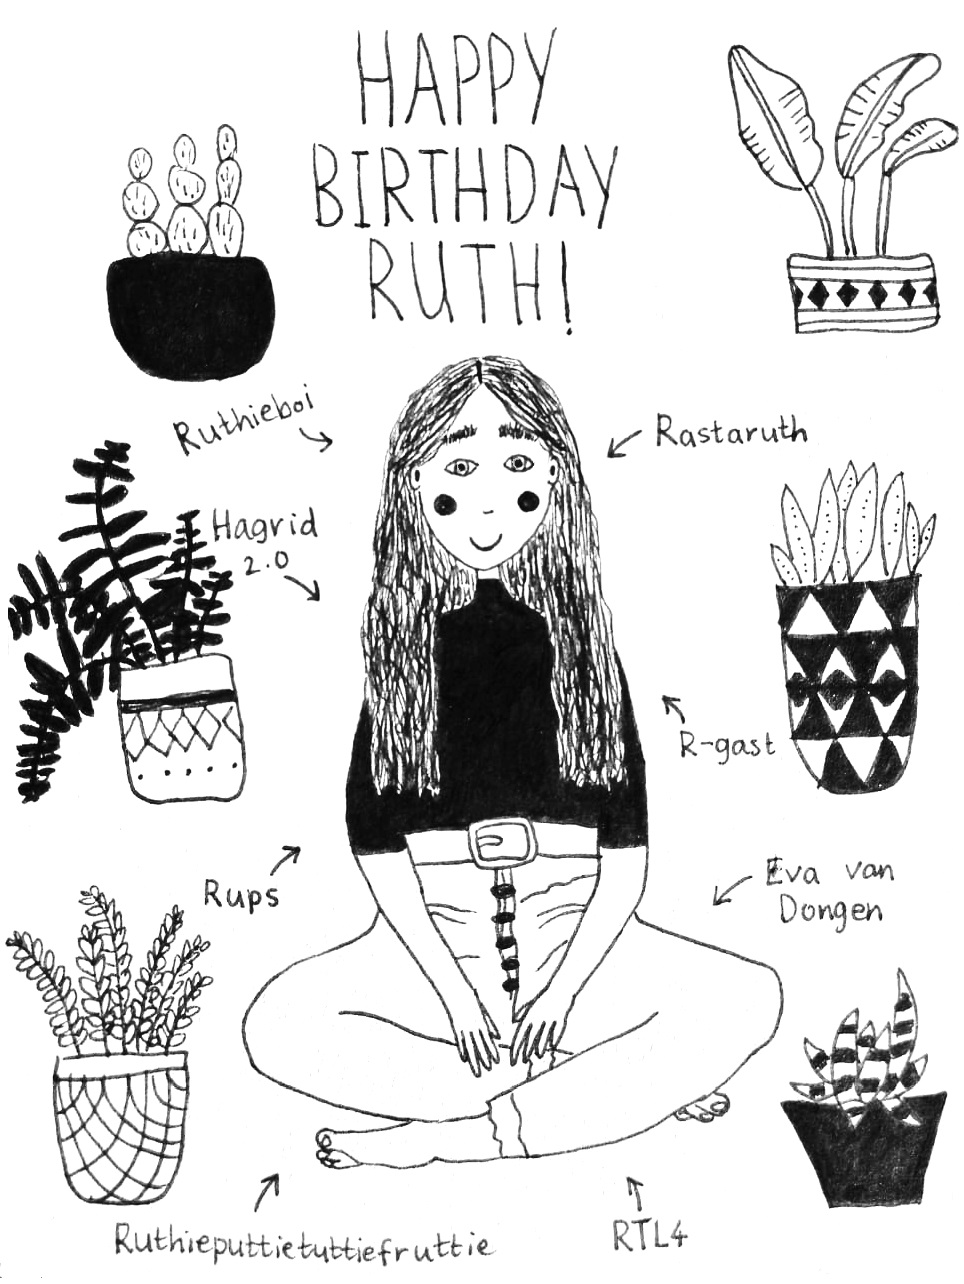 HAPPY
BIRTHDAY
RUTH!
Ruthieboi
Rastaruth
Hagrid
2.0
R-gast
Rups
Eva van
Dongen
Ruthieputtietuttiefruttie
RTL4